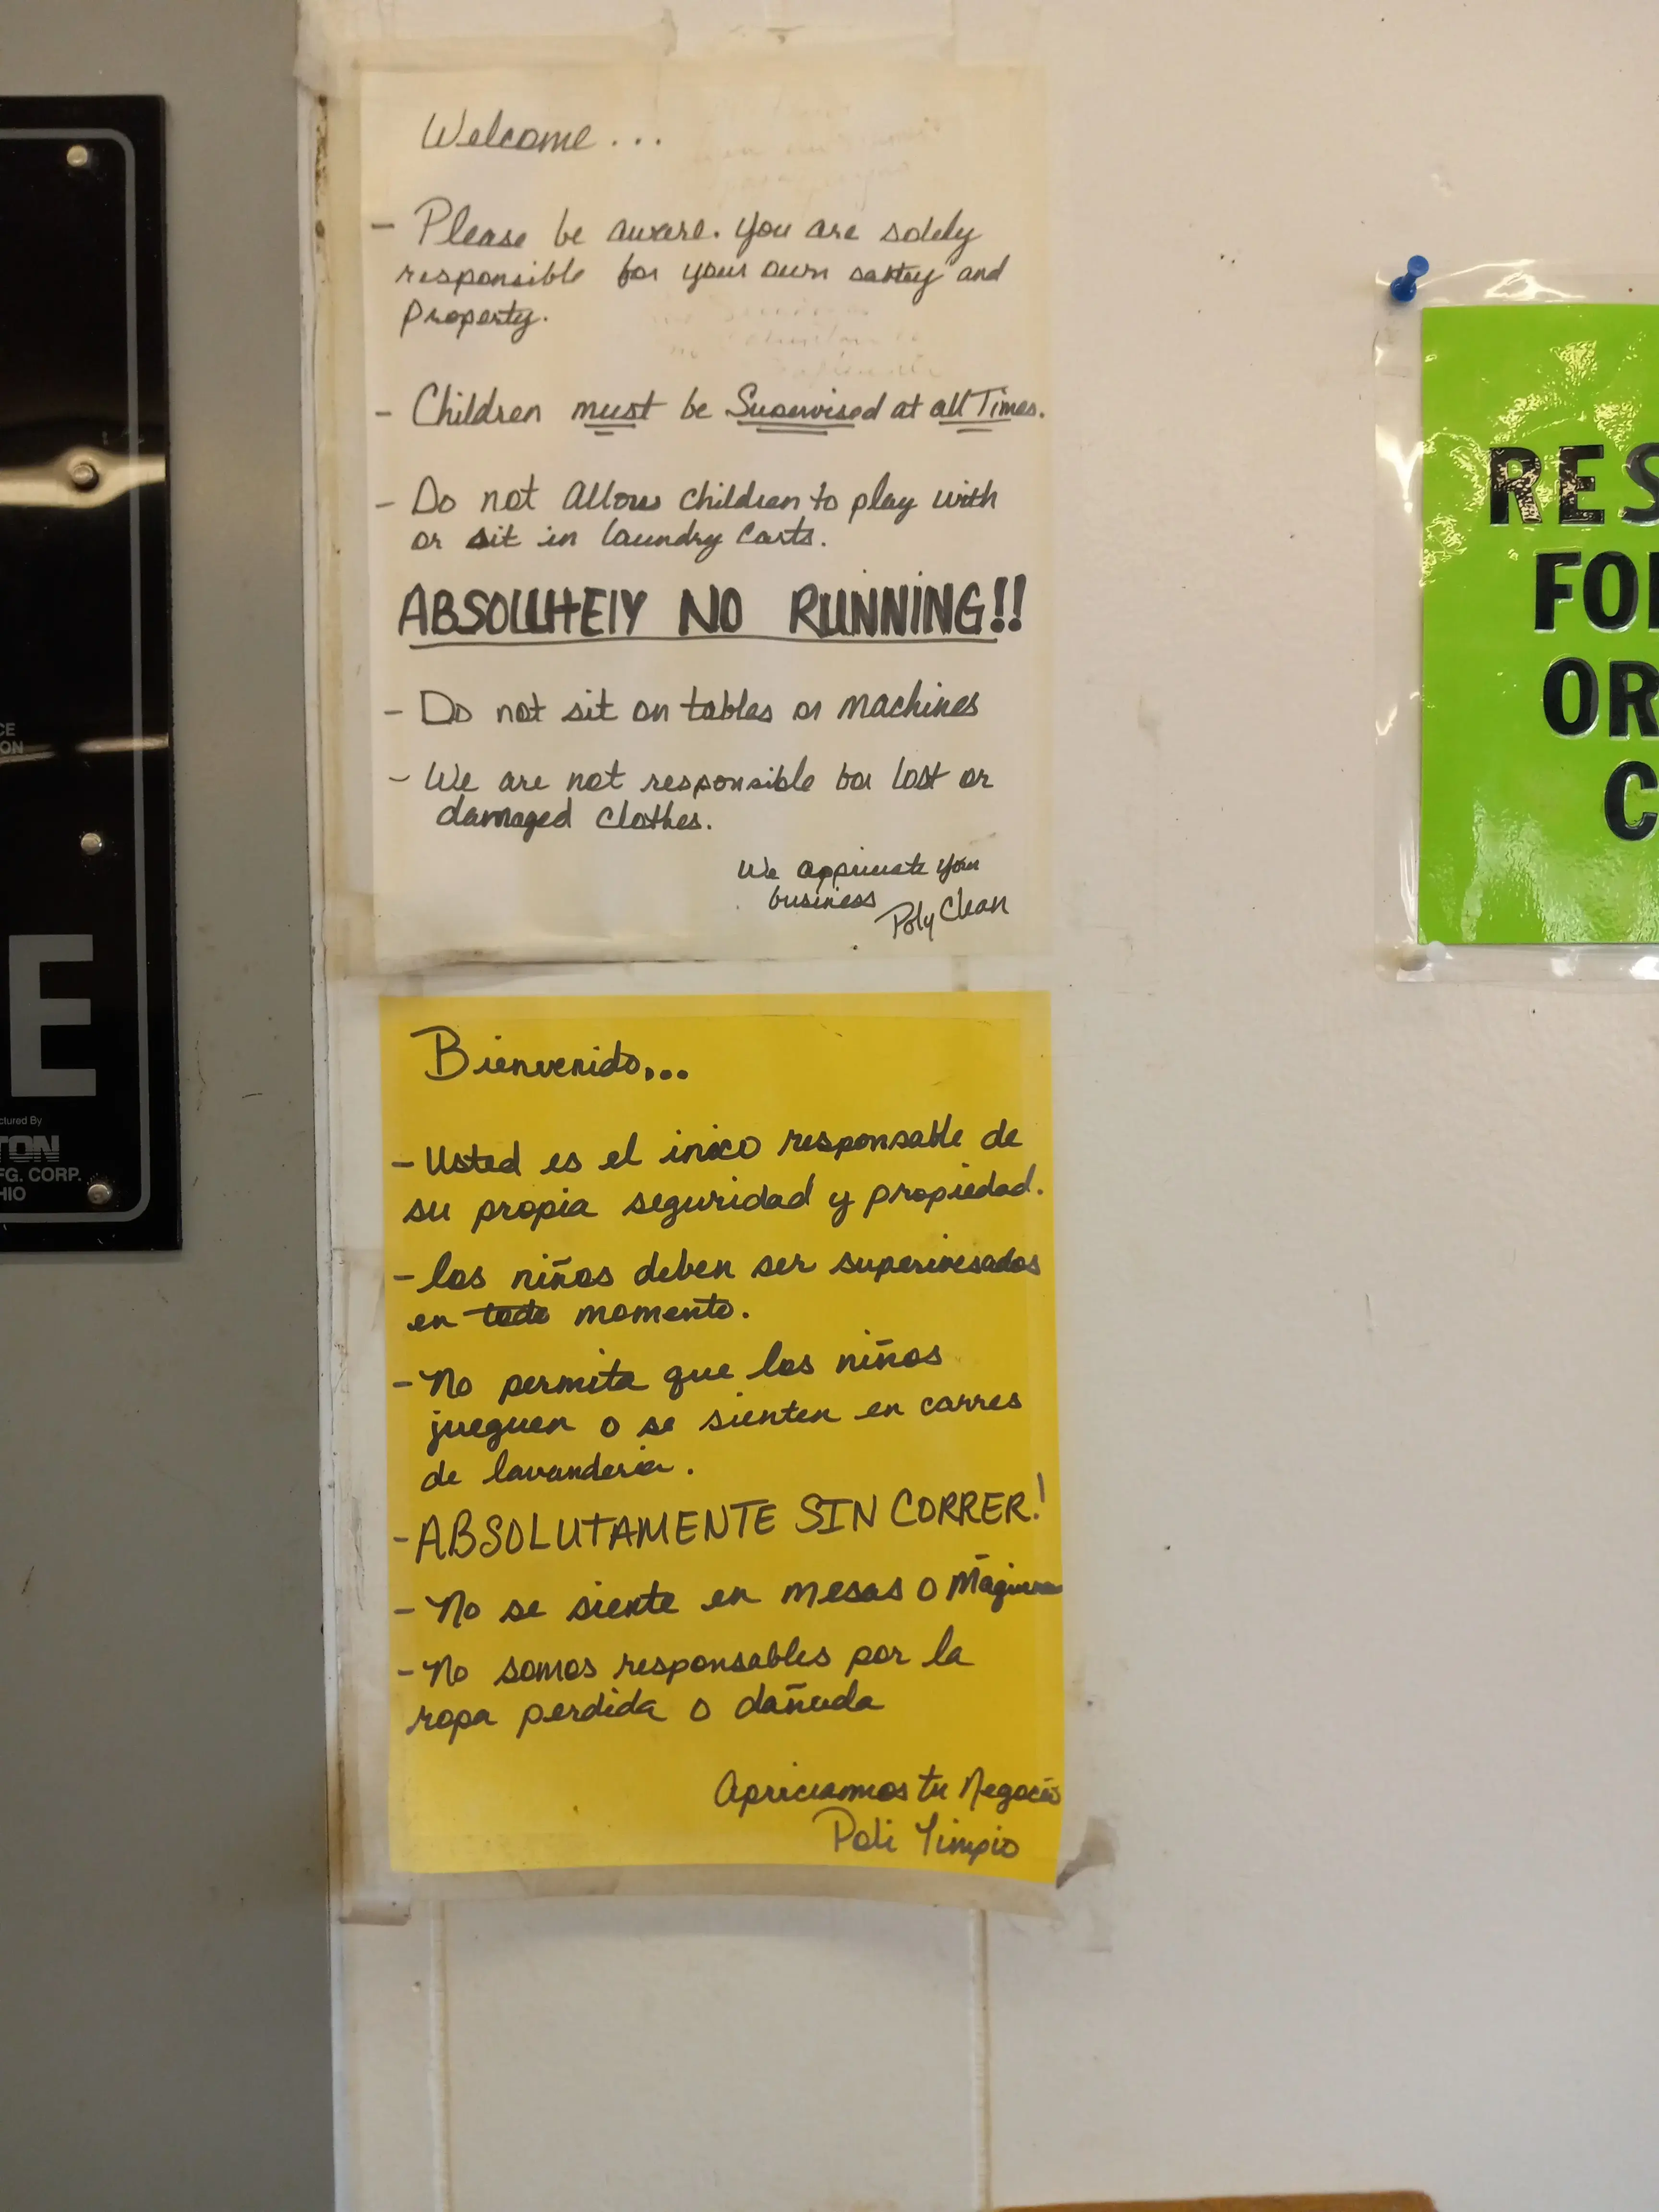 Welcome...
- Please be aware. You are solely
responsible for your own saftey and
Property.
- Children must be Supervised at all Times.
- Do not allow children to play with
or sit in laundry carts.
ABSOLUTELY NO RUNNING!!
- Do not sit on tables or machines
- We are not responsible for lost or
damaged clothes.
We appriciate your
business
Poly Clean
Bienvenido...
- Usted es el inico responsable de
su propia seguridad y propiedad.
- los niños deben ser
en todo momento.
- No permita que los niños
jueguen o se sienten en carres
de lavanderia.
- ABSOLUTAMENTE SIN CORRER!
- No se siente en mesas o
- No somos responsables por la
ropa perdida o dañada
Apriciamos tu Negocio
Poli Limpio
RES
FO
OR
C
CE
ON
E
ctured By
TON
FG. CORP.
HIO